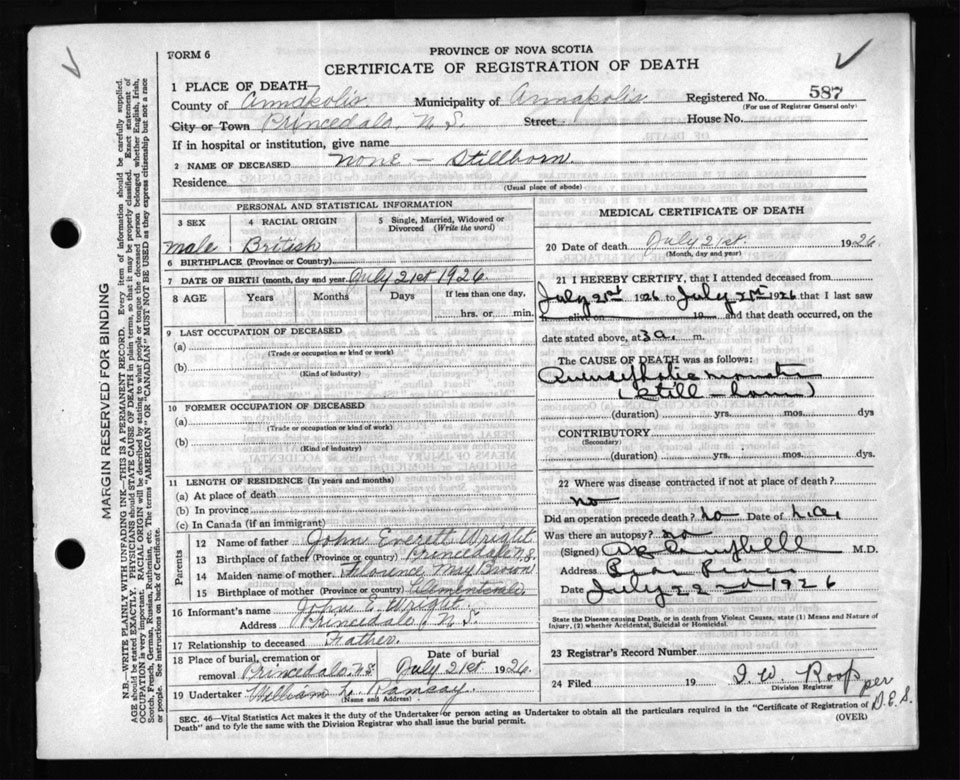 FORM 6
PROVINCE OF NOVA SCOTIA
CERTIFICATE OF REGISTRATION OF DEATH
1 PLACE OF DEATH
County of Annapolis. Municipality of Annapolis Registered No. 587
(For use of Registrar General only)
City or Town Princedale, N.S. Street House No.
If in hospital or institution, give name
2 NAME OF DECEASED None - Stillborn
Residence
(Usual place of abode)
PERSONAL AND STATISTICAL INFORMATION
3 SEX 4 RACIAL ORIGIN 5 Single, Married, Widowed or Divorced (Write the word)
male British
6 BIRTHPLACE (Province or Country)
7 DATE OF BIRTH (month, day and year) July 21st 1926
8 AGE Years Months Days If less than one day,
hrs. or min.
9 LAST OCCUPATION OF DECEASED
(a)
(Trade or occupation or kind or work)
(b)
(Kind of industry)
10 FORMER OCCUPATION OF DECEASED
(a)
(Trade or occupation or kind or work)
(b)
(Kind of industry)
11 LENGTH OF RESIDENCE (In years and months)
(a) At place of death
(b) In province
(c) In Canada (if an immigrant)
Parents
12 Name of father John Everett Wright
13 Birthplace of father (Province or country) Princedale N.S.
14 Maiden name of mother Florence May Brown
15 Birthplace of mother (Province or country) Clementsvale
16 Informant's name John E. Wright
Address Princedale, N.S.
17 Relationship to deceased Father.
18 Place of burial, cremation or removal Princedale, N.S. Date of burial July 21st 1926
19 Undertaker William L. Ramsay.
(Name and Address)
MEDICAL CERTIFICATE OF DEATH
20 Date of death July 21st. 1926
(Month, day and year)
21 I HEREBY CERTIFY, that I attended deceased from
July 1926 to July 21st 1926 that I last saw
h alive on 19 and that death occurred, on the
date stated above, at 3 a. m.
The CAUSE OF DEATH was as follows:
monster
(Still-born)
(duration) yrs. mos. dys
CONTRIBUTORY
(Secondary)
(duration) yrs. mos. dys.
22 Where was disease contracted if not at place of death?
no
Did an operation precede death? no Date of
Was there an autopsy? no
(Signed) Campbell M.D.
Address Bear River
Date July 22nd 1926
State the Disease causing Death, or in death from Violent Causes, state (1) Means and Nature of
Injury, (2) whether Accidental, Suicidal or Homicidal.
23 Registrar's Record Number
24 Filed 19 I. W. Roop per
Division Registrar D.E.S.
SEC. 46—Vital Statistics Act makes it the duty of the Undertaker or person acting as Undertaker to obtain all the particulars required in the "Certificate of Registration of
Death" and to fyle the same with the Division Registrar who shall issue the burial permit.
(OVER)
MARGIN RESERVED FOR BINDING
N.B.—WRITE PLAINLY WITH UNFADING INK—THIS IS A PERMANENT RECORD. Every item of information should be carefully supplied.
AGE should be stated EXACTLY. PHYSICIANS should STATE CAUSE OF DEATH in plain terms, so that it may be properly classified. Exact statement of
OCCUPATION is very important. RACIAL ORIGIN will be described by stating to what people or tongue the deceased person belonged whether English, Irish,
Scotch, French, German, Russian, Ruthenian, etc. The terms "AMERICAN" OR "CANADIAN" MUST NOT BE USED as they express citizenship but not a race
or people. See instructions on back of Certificate.